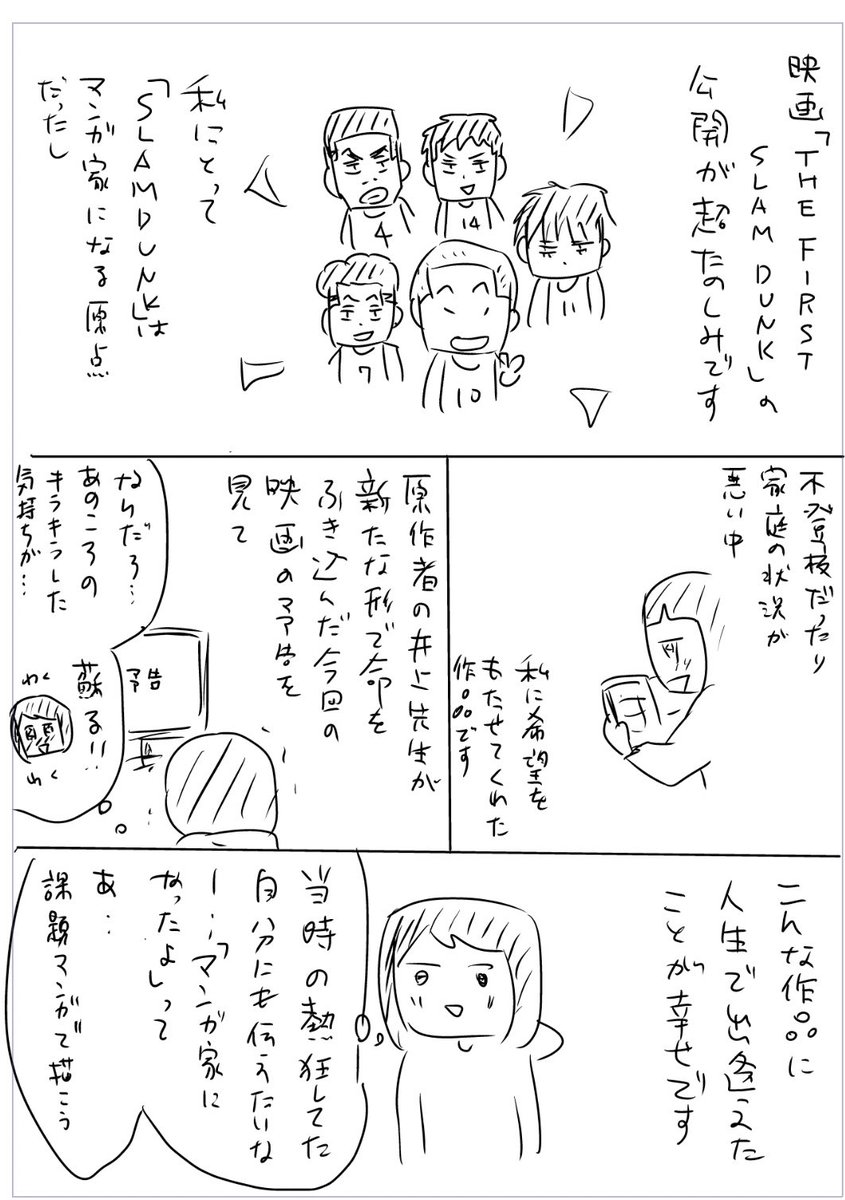 映画「THE FIRST
SLAM DUNK」の
公開が超たのしみです
4
14
11
7
10
私にとって
「SLAM DUNK」は
マンガ家になる原点
だったし
不登校だったり
家庭の状況が
悪い中
私に希望を
もたせてくれた
作品です
原作者の井上先生が
新たな形で命を
ふき込んだ今回の
映画の予告を
見て
予告
なんだろ…
あのころの
キラキラした
気持ちが…
蘇る!!
わく
わく
こんな作品に
人生で出逢えた
ことが幸せです
当時の熱狂してた
自分にも伝えたいな
ー…「マンガ家に
なったよ」って
あ…
課題マンガで描こう